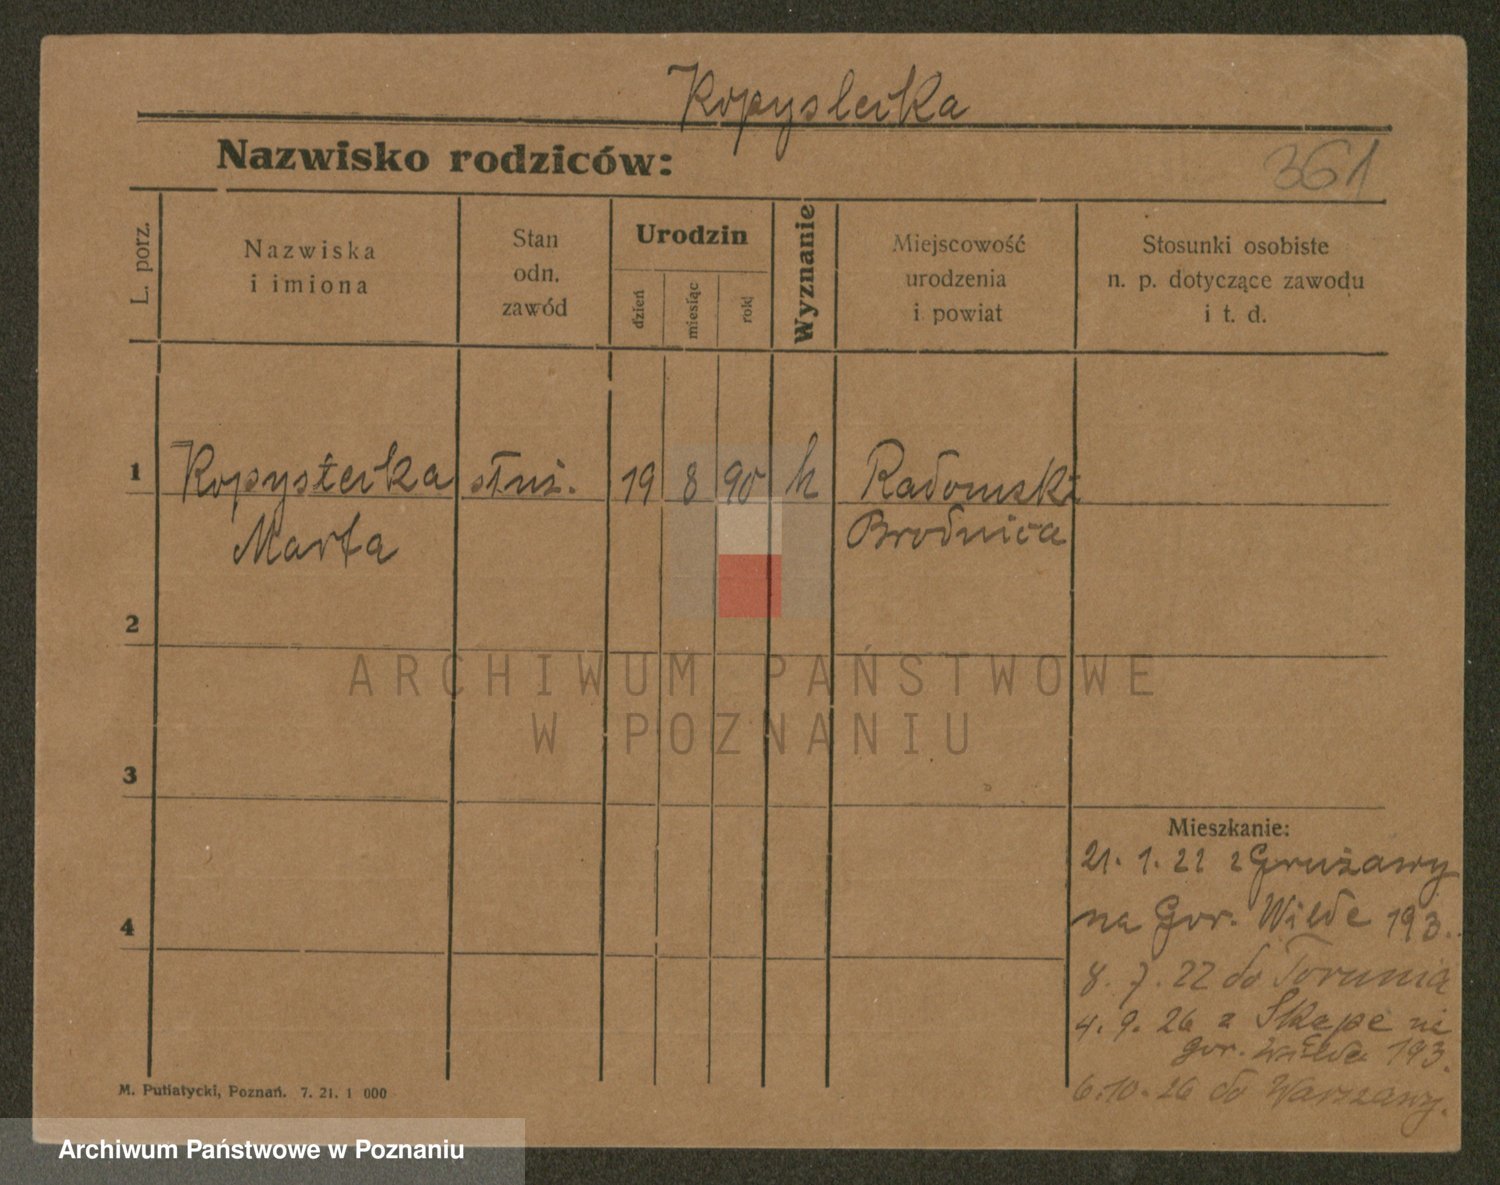 Kopysteika
361
Nazwisko rodziców:
L. porz.
Nazwiska
i imiona
Stan
odn.
zawód
Urodzin
dzień
miesiąc
rok
Wyznanie
Miejscowość
urodzenia
i powiat
Stosunki osobiste
n. p. dotyczące zawodu
i t. d.
1 Kopysteika służ. 19 8 90 k Radomski
Marta Brodnica
2
3
4
Mieszkanie:
21. 1. 22 z
na Gor. Wilde 193.
8. 7. 22 do Torunia
4. 9. 26 z Skępe na
gor. Wilda 193.
6. 10. 26 do Warszawy.
M. Putiatycki, Poznań. 7. 21. 1 000
ARCHIWUM PAŃSTWOWE
W POZNANIU
Archiwum Państwowe w Poznaniu